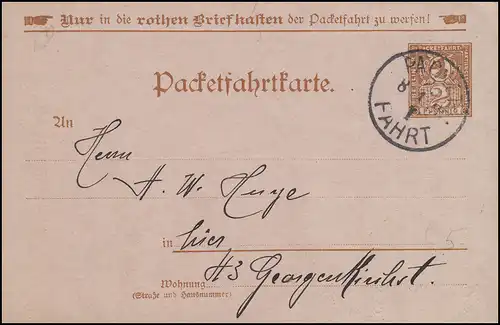 Nur in die rothen Briefkasten der Packetfahrt zu werfen!
PACKETFAHRT
2
PFENNIG
FAHRT
Packetfahrtkarte.
An
Herrn
H. W. Heye
in hier
43 Georgenkirchst.
Wohnung
(Straße und Hausnummer)